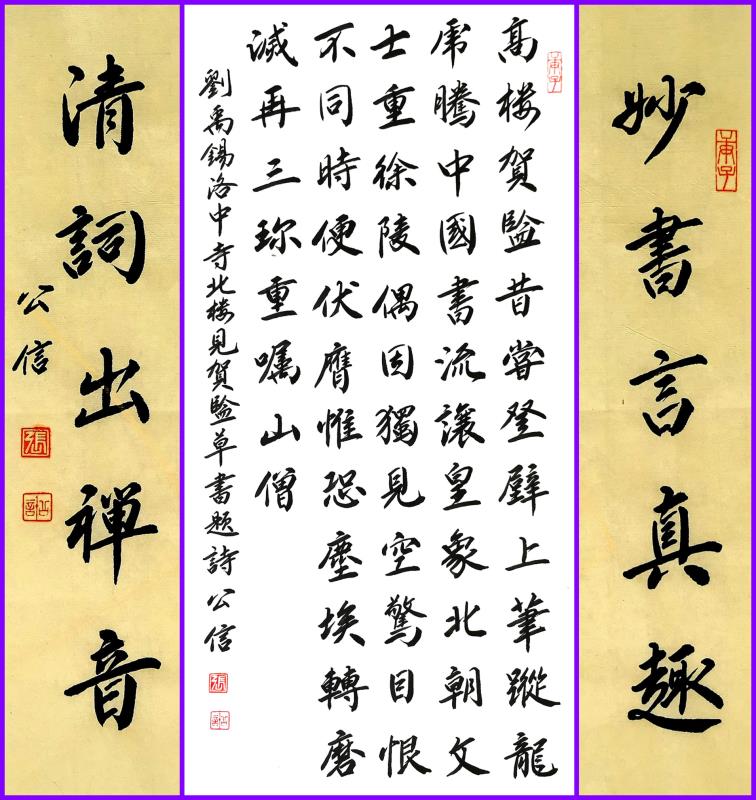 妙書言真趣
庚子
庚子
高楼賀監昔嘗登壁上筆蹤龍
虎騰中國書流讓皇象北朝文
士重徐陵偶因獨見空驚目恨
不同時便伏膺惟恐塵埃轉磨
滅再三珍重嘱山僧
劉禹錫洛中寺北楼見賀監草書題詩 公信
張
清詞出禪音
公信
張